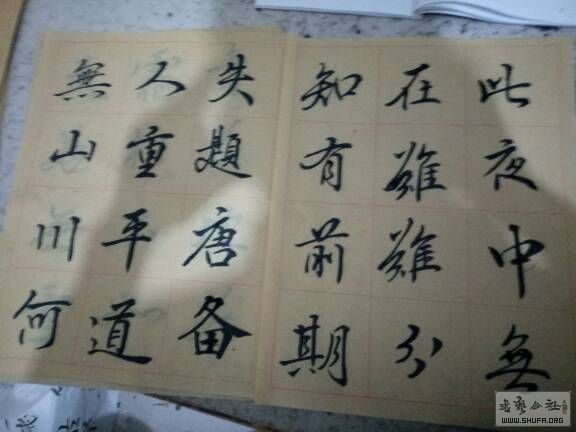 無山川何
人重平道
失題唐備
知有前期
在難難分
此夜中無
書藝公社
WWW.SHUFA.ORG